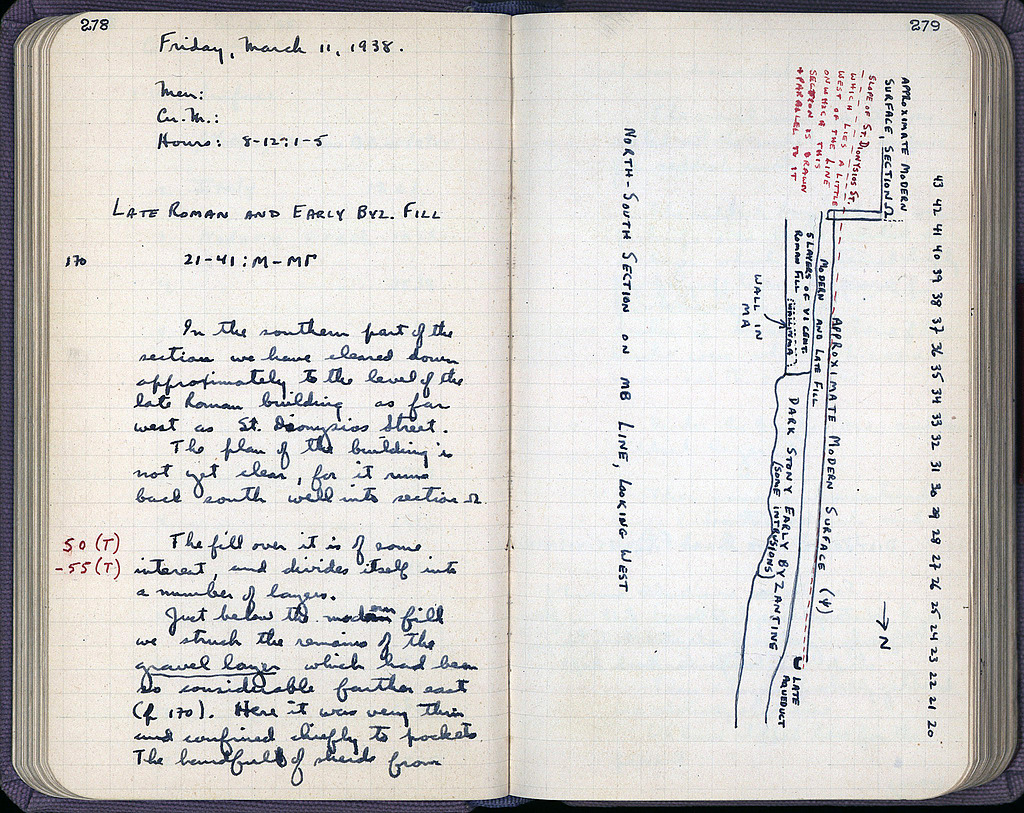 278
Friday, March 11, 1938.
Men:
Cu. M.:
Hours: 8-12; 1-5
LATE ROMAN AND EARLY BYZ. FILL
170
21-41: M-ΜΓ
In the southern part of the
section we have cleared down
approximately to the level of the
late Roman building as far
west as St. Dionysios Street.
The plan of the building is
not yet clear, for it runs
back south well into section Ω
50 (T)
-55 (T)
The fill over it is of some
interest, and divides itself into
a number of layers.
Just below the modern fill
we struck the remains of the
gravel layer which had been
so considerable farther east
(p 170). Here it was very thin
and confined chiefly to pockets
The handful of sherds from
279
APPROXIMATE MODERN
SURFACE, SECTION Ω
SLOPE OF ST. DIONYSIOS ST.
WHICH LIES A LITTLE
WEST OF THE LINE
ON WHICH THIS
SECTION IS DRAWN
+ PARALLEL TO IT
43 42 41 40 39 38 37 36 35 34 33 32 31 30 29 28 27 26 25 24 23 22 21 20
N
APPROXIMATE MODERN SURFACE (Ψ)
MODERN AND LATE FILL
5 LAYERS OF VI CENT.
ROMAN FILL
WALL IN
MA
DARK STONY EARLY BYZANTINE
(SOME INTRUSIONS)
LATE
AQUEDUCT
NORTH-SOUTH SECTION ON MB LINE, LOOKING WEST